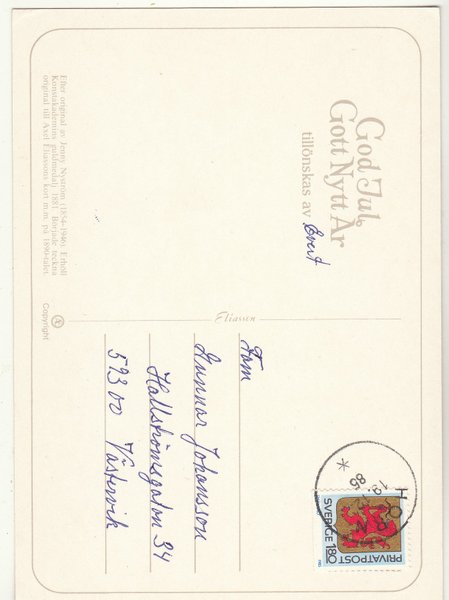 God Jul
Gott Nytt År
tillönskas av Evert
Efter original av Jenny Nyström (1854-1946). Erhöll
Konstakademins guldmedalj 1881. Började teckna
original till Axel Eliassons kort m.m. på 1890-talet.
Copyright
Eliasson
Fam
Gunnar Johansson
Hallströmsgatan 34
59300 Västervik
SVERIGE 180
PRIVATPOST
86